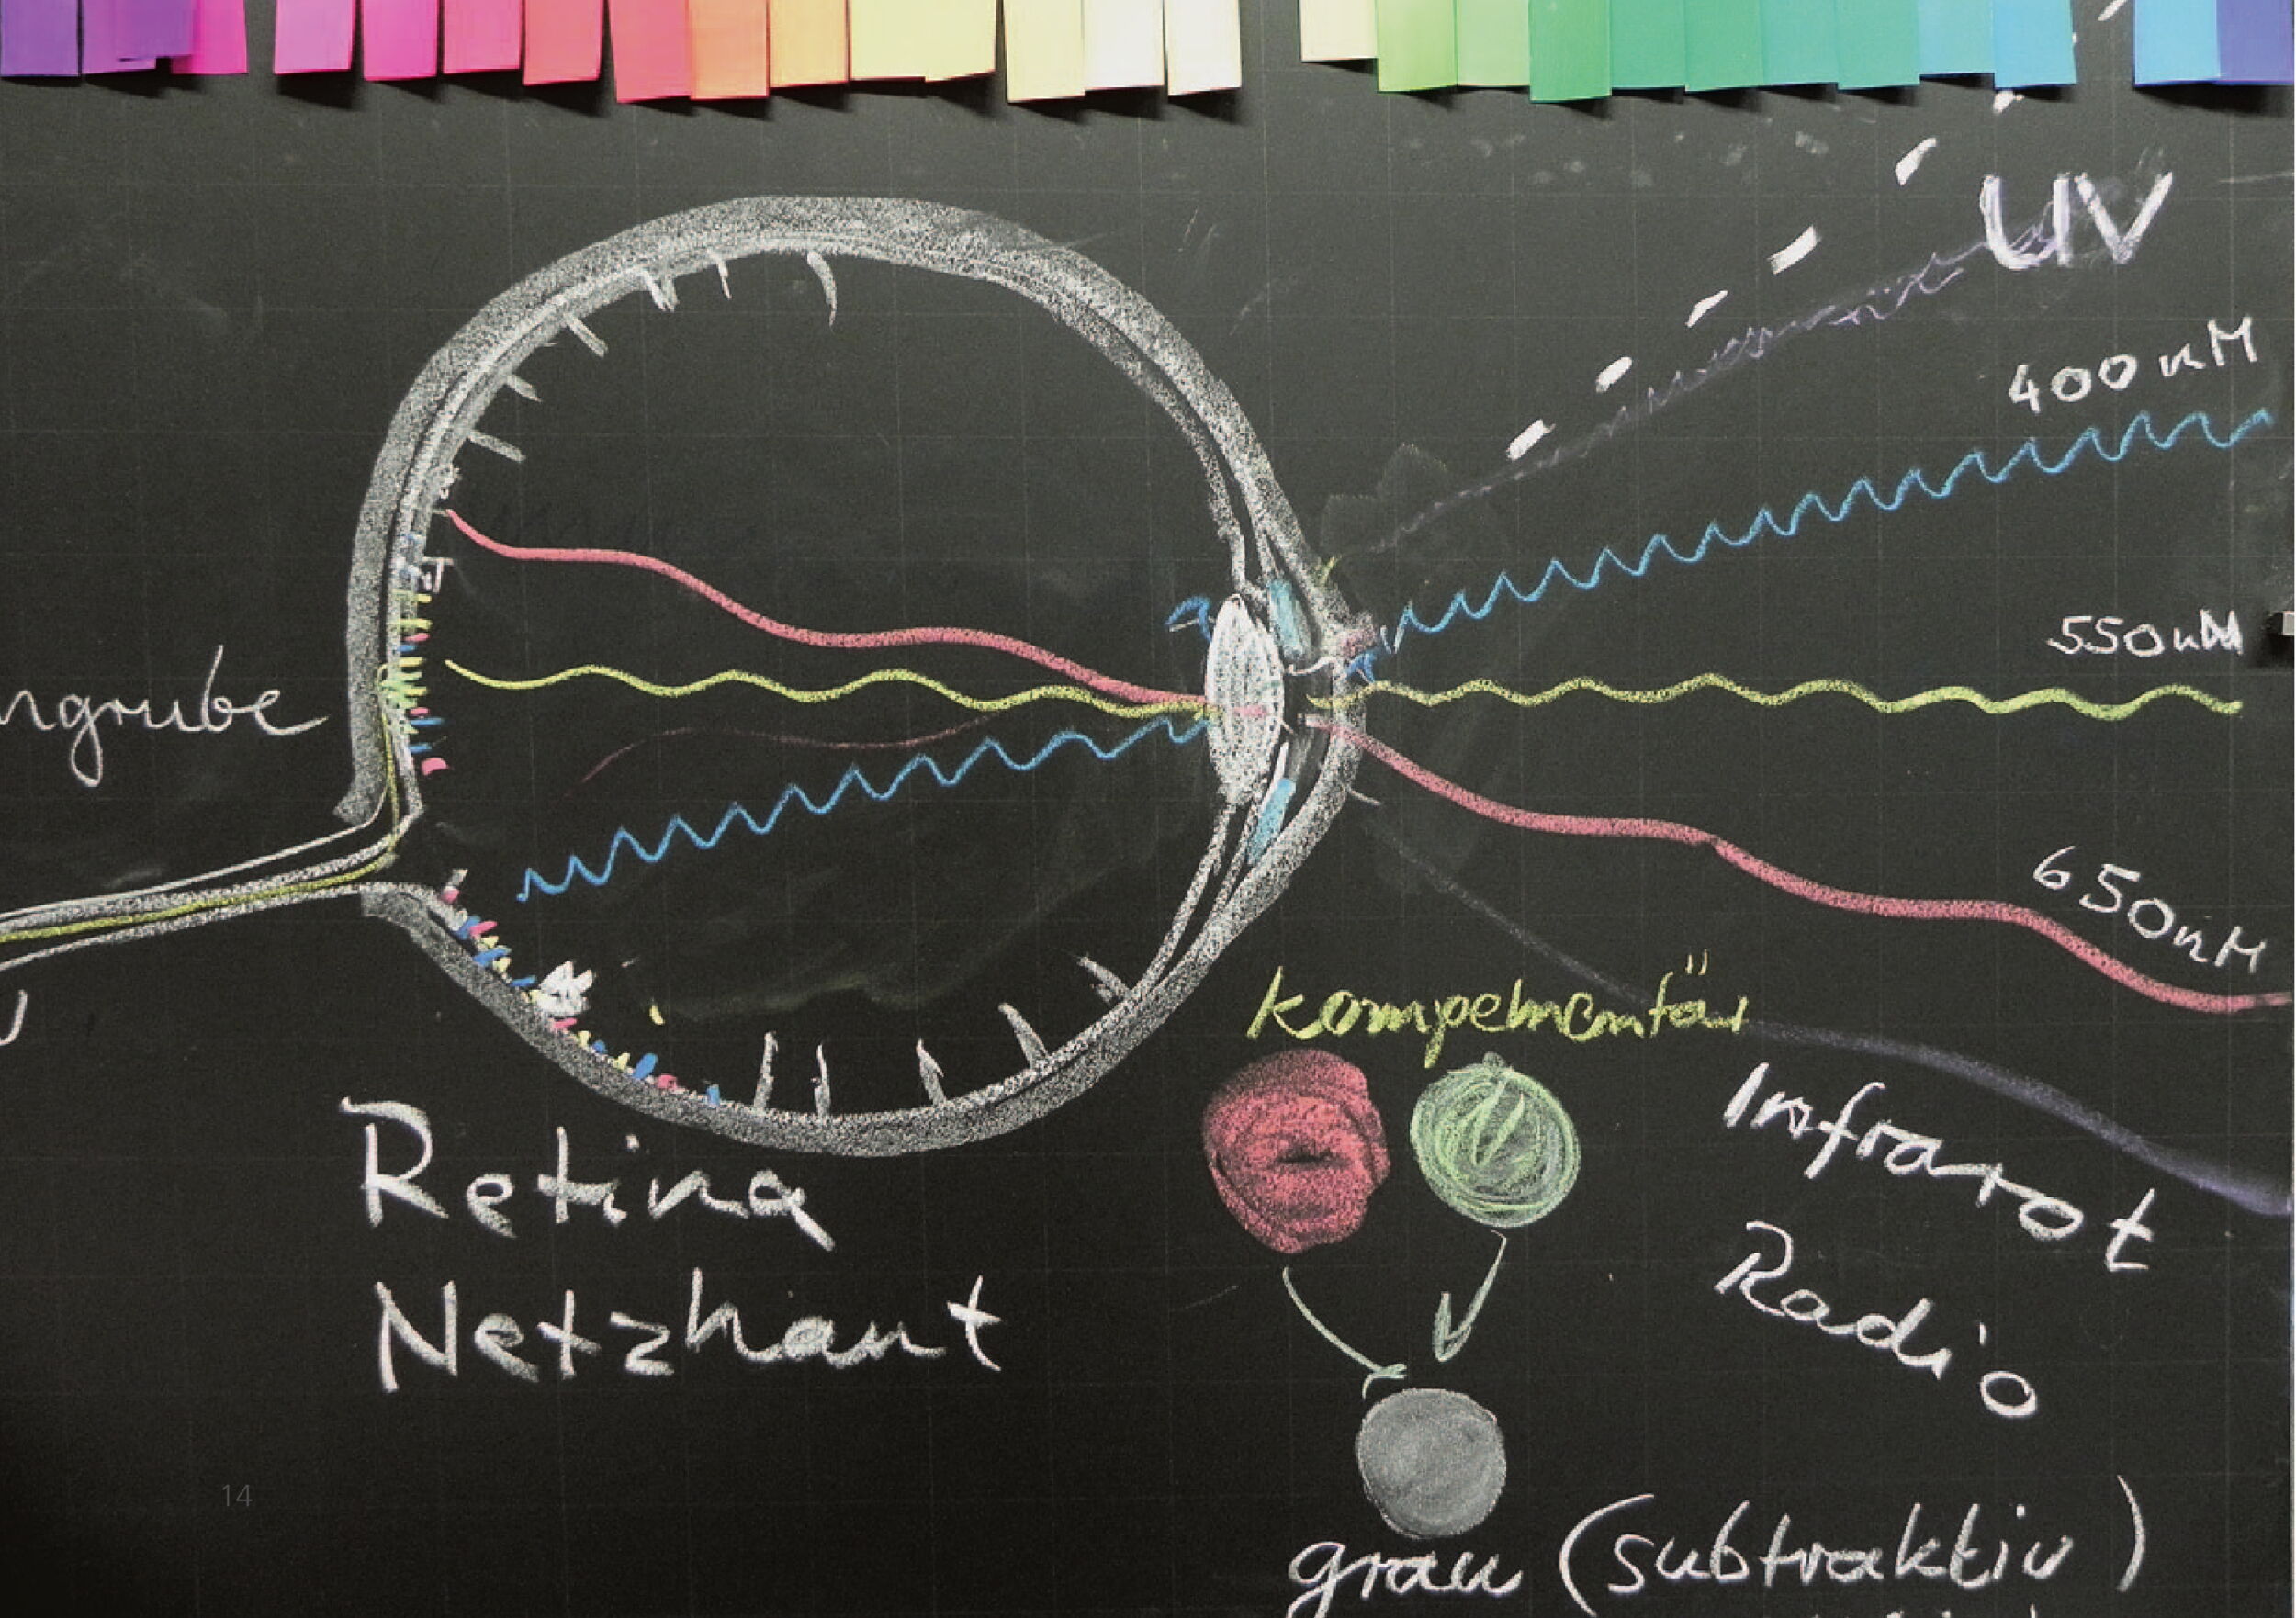 UV
400 nM
550 nM
ngrube
650 nM
kompelmentär
Infrarot
Retina
Radio
Netzhaut
14
grau (subtraktiv)